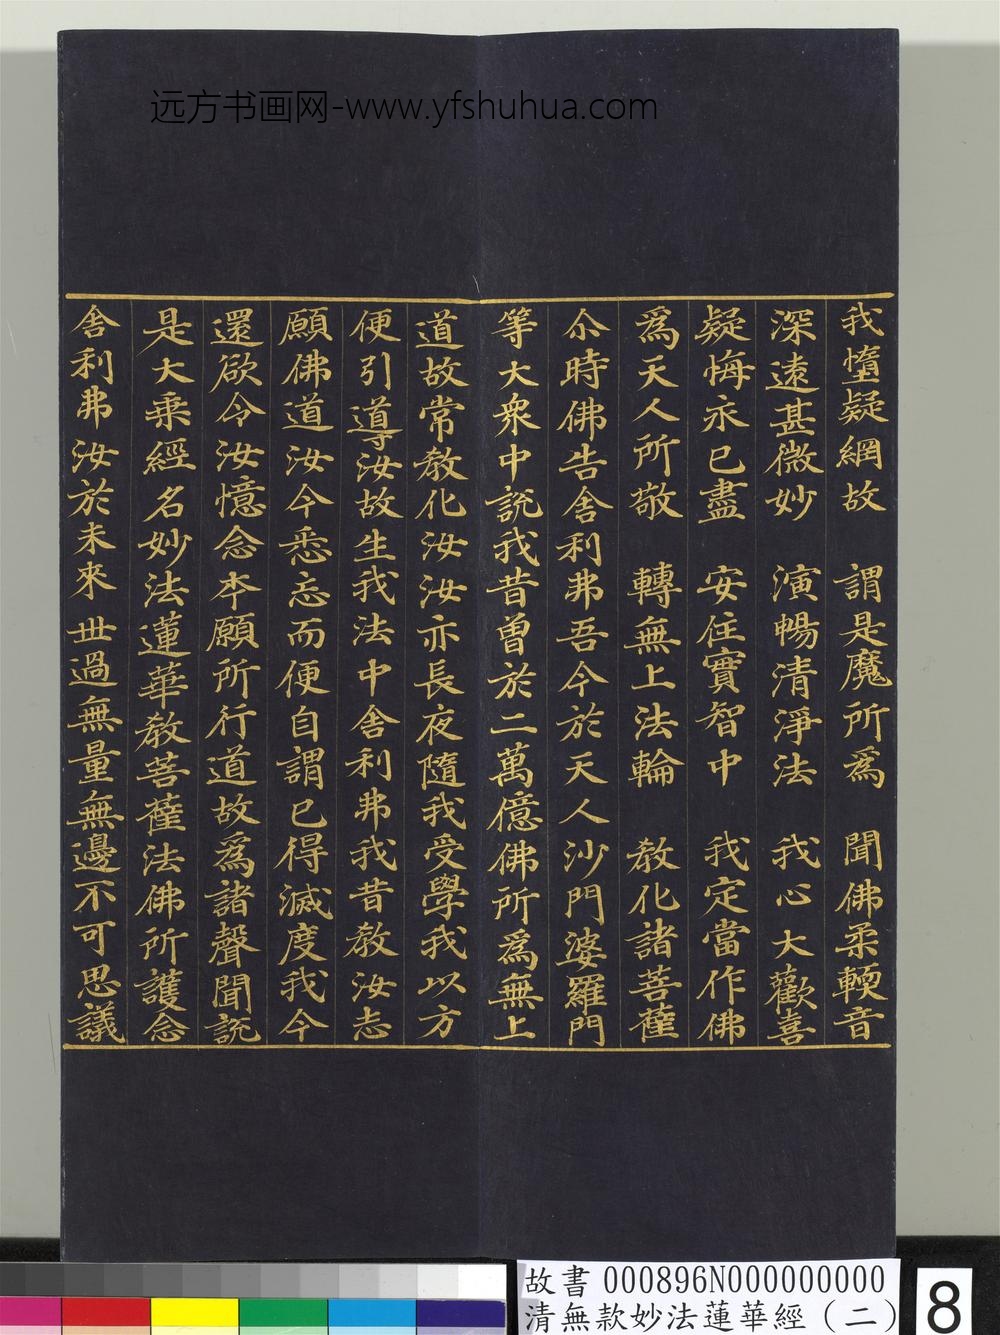 远方书画网-www.yfshuhua.com
我墮疑網故　謂是魔所為　聞佛柔輭音
深遠甚微妙　演暢清淨法　我心大歡喜
疑悔永已盡　安住實智中　我定當作佛
為天人所敬　轉無上法輪　教化諸菩薩
尒時佛告舍利弗吾今於天人沙門婆羅門
等大眾中說我昔曾於二萬億佛所為無上
道故常教化汝汝亦長夜隨我受學我以方
便引導汝故生我法中舍利弗我昔教汝志
願佛道汝今悉忘而便自謂已得滅度我今
還欲令汝憶念本願所行道故為諸聲聞說
是大乗經名妙法蓮華教菩薩法佛所護念
舍利弗汝於未來世過無量無邊不可思議
故書 000896N000000000
清無款妙法蓮華經（二）
8